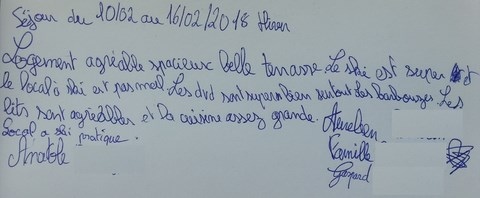 Séjour du 10/02 au 16/02/2018 Hiver
Logement agréable spacieux belle terrasse. Le ski est super et
le local à ski est pas mal. Les dvd sont super bien surtout les barbouzes. Les
lits sont agréables et la cuisine assez grande. Aurelien
local a ski pratique. Camille
Anatole Gaspard